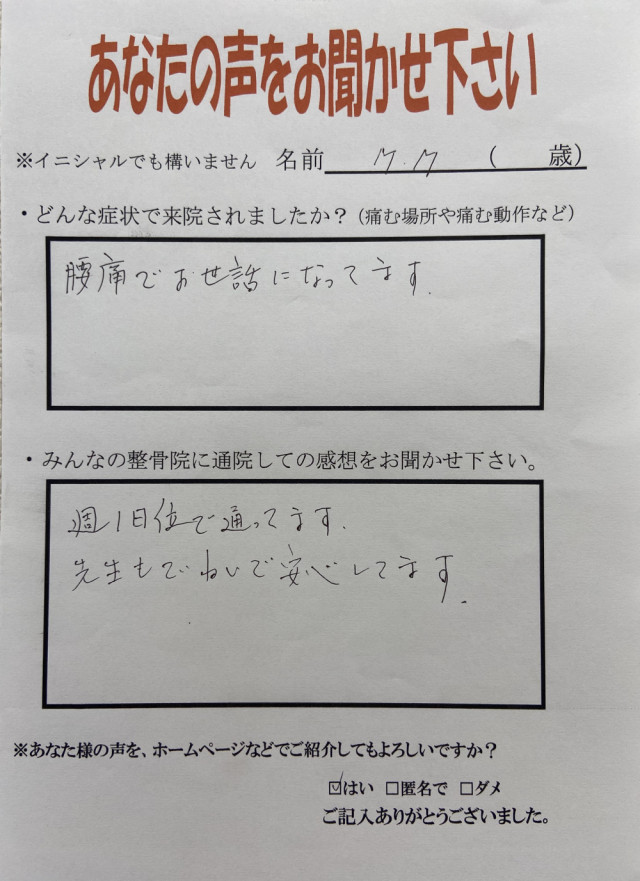 あなたの声をお聞かせ下さい
※イニシャルでも構いません 名前 ( 歳)
・どんな症状で来院されましたか？(痛む場所や痛む動作など)
腰痛でお世話になってます.
・みんなの整骨院に通院しての感想をお聞かせ下さい。
週1日位で通ってます.
先生もていねいで安心してます.
※あなた様の声を、ホームページなどでご紹介してもよろしいですか？
☑はい □匿名で □ダメ
ご記入ありがとうございました。